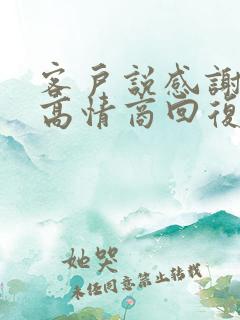 客戶説感謝
高情商回復
她哭
未经同意禁止转载